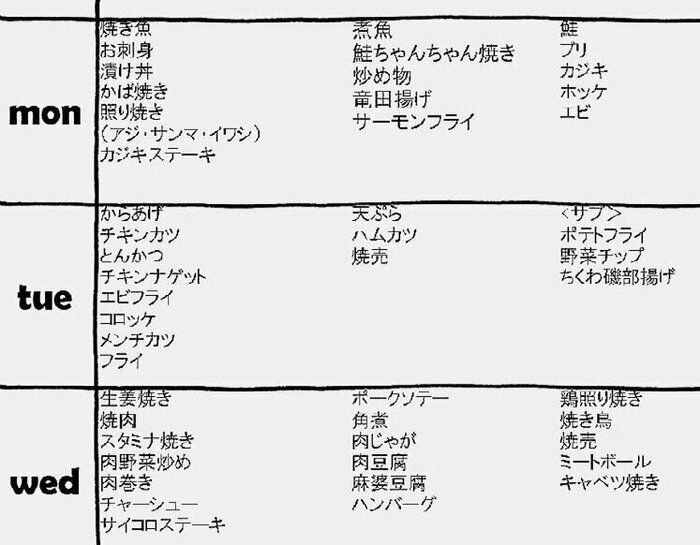 mon
焼き魚
お刺身
漬け丼
かば焼き
照り焼き
（アジ・サンマ・イワシ）
カジキステーキ
煮魚
鮭ちゃんちゃん焼き
炒め物
竜田揚げ
サーモンフライ
鮭
ブリ
カジキ
ホッケ
エビ
tue
からあげ
チキンカツ
とんかつ
チキンナゲット
エビフライ
コロッケ
メンチカツ
フライ
天ぷら
ハムカツ
焼売
＜サブ＞
ポテトフライ
野菜チップ
ちくわ磯部揚げ
wed
生姜焼き
焼肉
スタミナ焼き
肉野菜炒め
肉巻き
チャーシュー
サイコロステーキ
ポークソテー
角煮
肉じゃが
肉豆腐
麻婆豆腐
ハンバーグ
鶏照り焼き
焼き鳥
焼売
ミートボール
キャベツ焼き